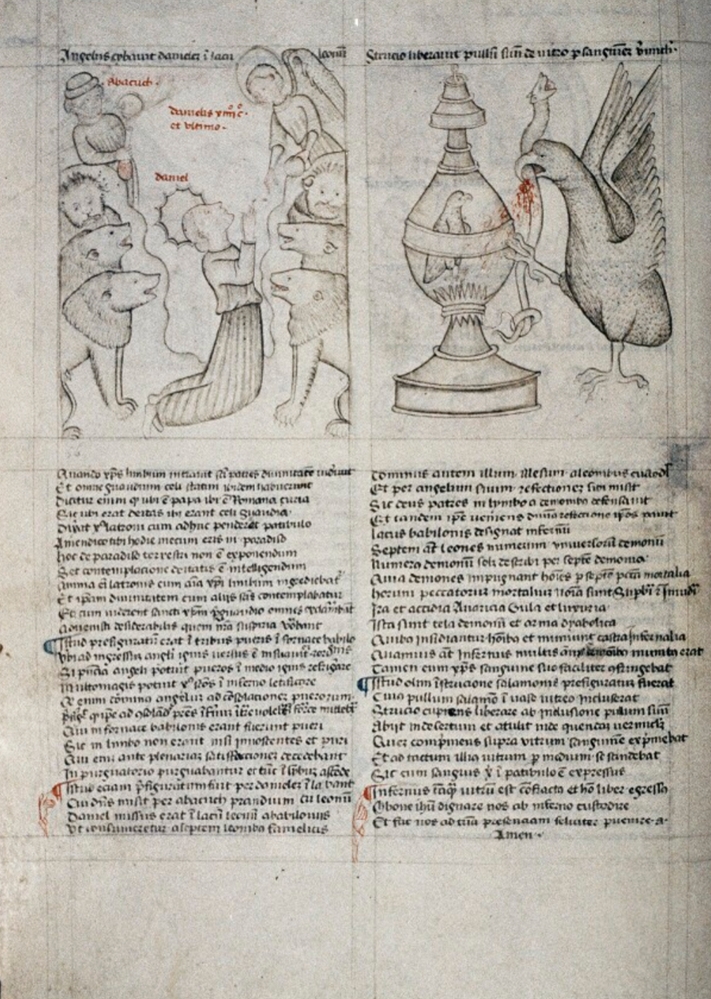 Angelus cybauit danielem ī lacu leonū
Strucio liberauit pullū suū de uitro p sanguinem
Abacuch.
danielis xiiij c̄.
et vltimo.
daniel
Quando xp̄s limbum intrauit sc̄i patres diuinitatē
Et omne gaudium celi statim ibidem habuerunt
Dicitur enim q ubi ē papa ibi ē Romana curia
Sic ubi erat deitas ibi erant celi gaudia
Dixit xp̄s latroni cum adhuc penderet patibulo
Amen dico tibi hodie mecum eris in paradiso
hoc de paradiso terrestri non ē exponendum
Sed contemplacione deitatis ē intelligendum
Anima eī latronis cum aīa xp̄i limbum ingrediebat̄
Et ip̄am diuinitatem cum alijs sc̄is contemplabatur
Et cum uiderent sancti xp̄m p gaudio omnes
Aduenisti desiderabilis quem
Istud prefiguratū erat ī tribus pueris ī fornace babilo
Vbi ad ingressum angeli ignis uersus ē
Si p̄ncia angeli potuit pueros ī medio ignis refrigare
multomagis potuit xp̄s sc̄os ī inferno letificare
Et enim comino angelus ad cōsolacionem puerorum
Qui in fornace babilonis erant fuerunt pueri
Sic in limbo non erant nisi innocentes et puri
Qui eni ante plenariam satisfactionem decedebant
In purgatorio purgabantur et tūc ī limbū
Istud eciam p̄figuratū fuit per danielem ī
Cui dn̄s misit per abacuch prandium
Daniel missus erat ī lacū leonū a babilonijs
Vt consumeretur a septem leonibus famelicis
Dominus autem illum illesum a leonibus custodi
Et per angelum suum refectionem sibi misit
Sic deus patres in lymbo a demonibus defensauit
Et tandem ip̄e ueniens
lacus babilonis designat infernū
Septem aūt leones numerum vniuersorū demonū
Numerus demonū solet describi per septē demonia
Quia demones impugnant hoīes p septē pccā mortalia
horum peccatorum mortaliū noīa sunt Supbīa Inuidia
Ira et accidia Auaricia Gula et luxuria
Ista sunt tela demonū et arma dyabolica
Quibꝰ insidiantur hoībꝰ et muniunt castra infernalia
Quamuis aūt infernus multis munitꝰ erat
Tamen eum xp̄s sanguine suo faciliter
Istud olim ī strucione salamonis prefiguratū fuerat
Cuiꝰ pullum salamō ī uase uitreo incluserat
Strucio cupiens liberare ab inclusione pullum suū
Abijt in desertum et attulit inde quendam vermiclm
Quem comprimens supra uitrum sanguinē exprimebat
Et ad tactum illiꝰ uitrum p medium se scindebat
Sic cum sanguis xp̄i ī patibulo ē expressus
Infernus tāq̄ uitrū est confracta et hō liber egressꝰ
O bone ihū dignare nos ab inferno custodire
Et fac nos ad tuā presenciam feliciter puenire.
Amen.